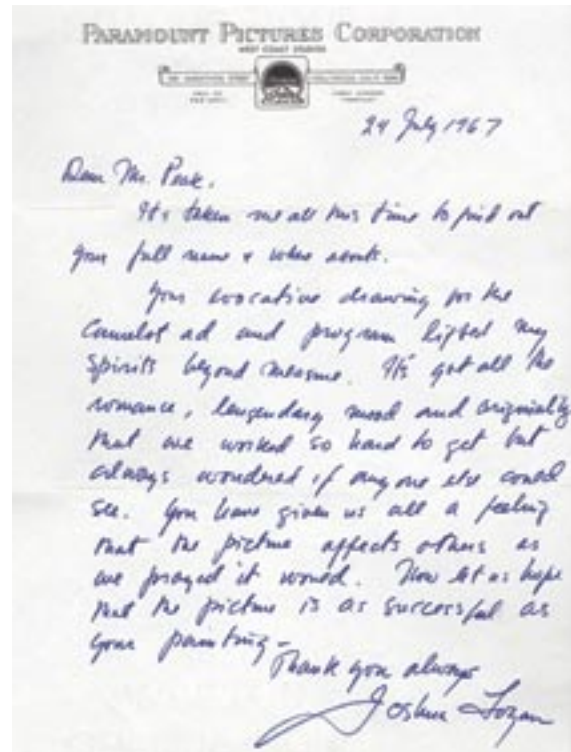 PARAMOUNT PICTURES CORPORATION
WEST COAST STUDIOS
24 July 1967
Dear Mr. Peak,
It's taken me all this time to find out
your full name & where abouts.
Your evocative drawing for the
Camelot ad and program lifted my
Spirits beyond measure. It's got all the
romance, legendary mood and originality
that we worked so hard to get but
always wondered if anyone else could
see. You have given us all a feeling
that the picture affects others as
we prayed it would. Now let us hope
that the picture is as successful as
your painting-
Thank you always
Joshua Logan